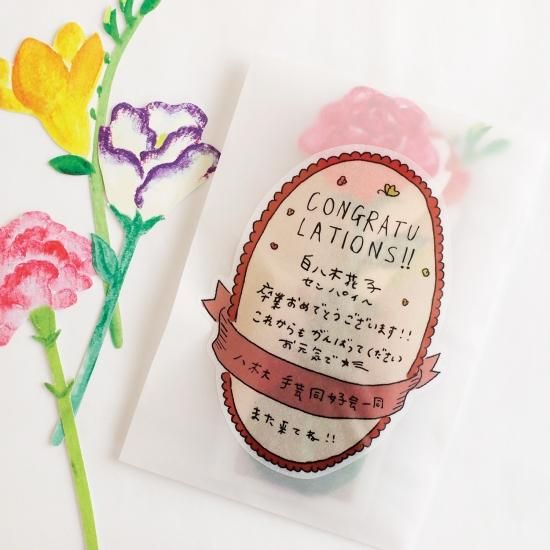 CONGRATU
LATIONS!!
白八木花子
センパイへ
卒業おめでとうございます!!
これからもがんばってください
お元気で
八木大 手芸同好会一同
また来てね!!